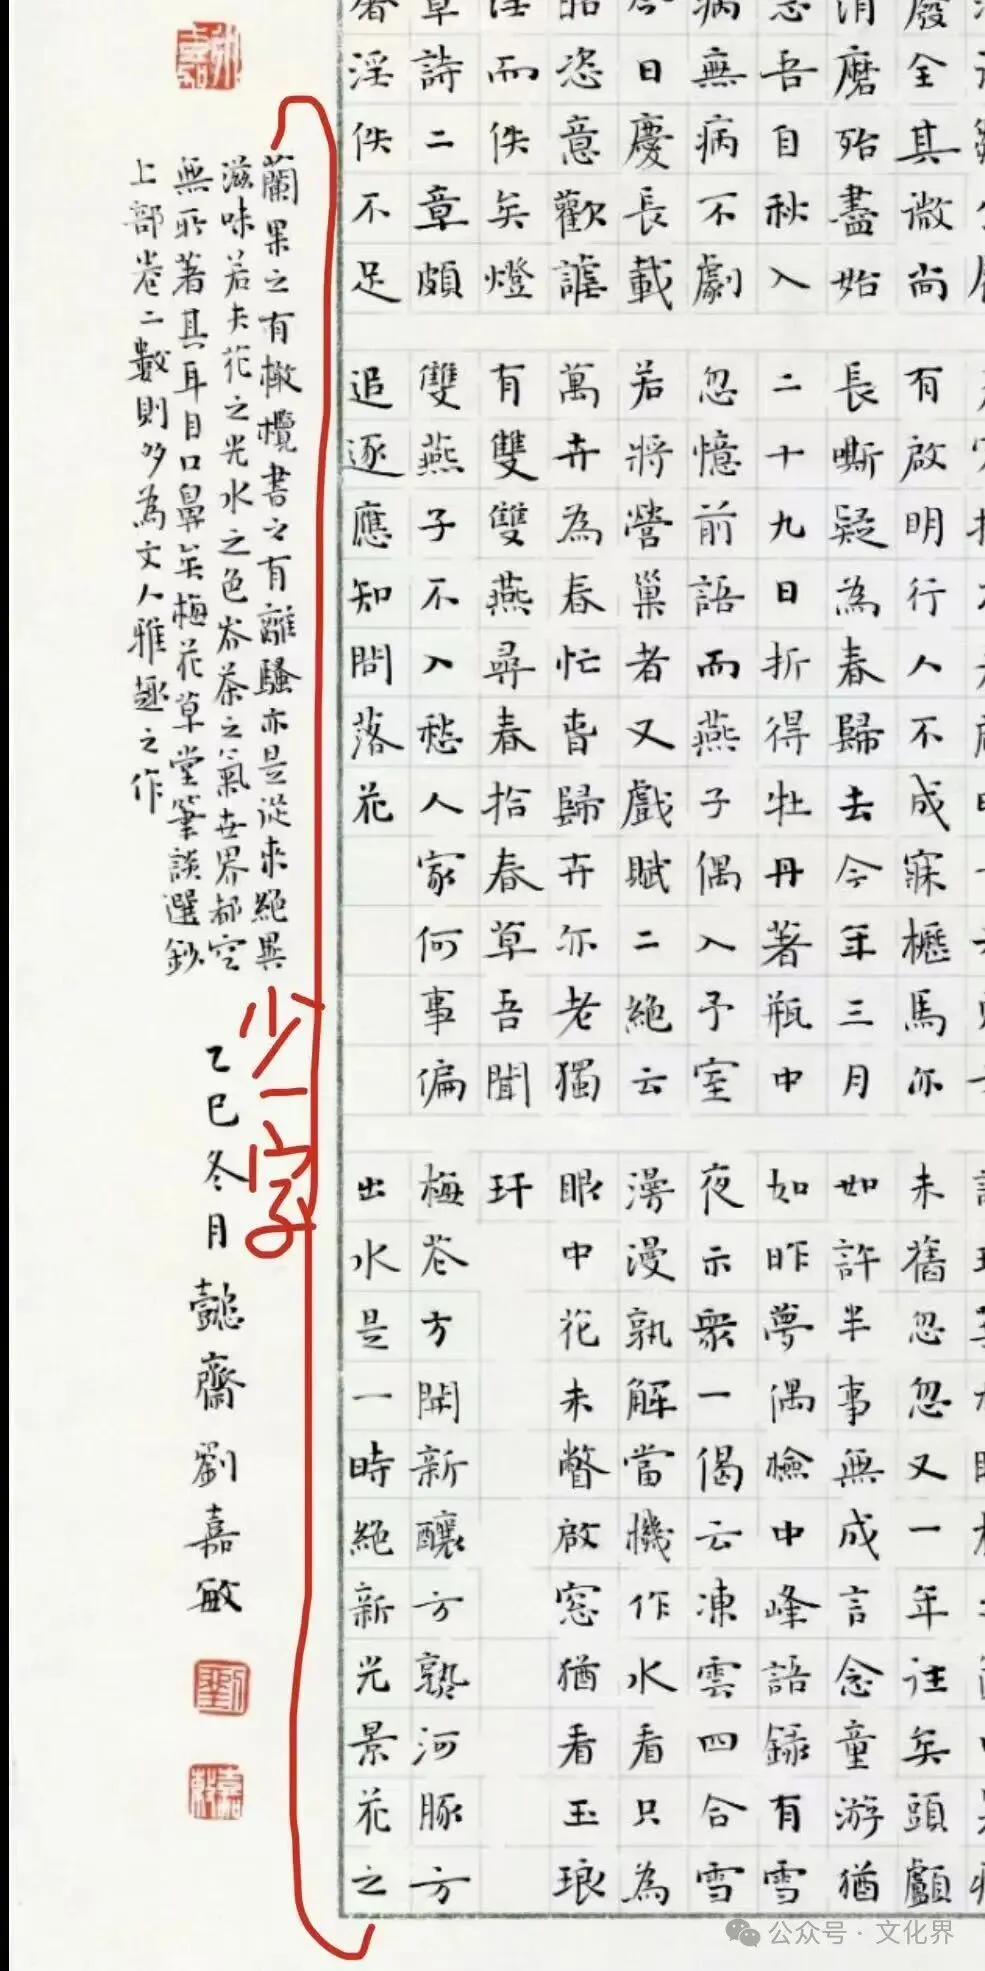 廢全其微尚
消磨殆盡始
忘吾自秋入
病無病不劇
今日慶長載
昭恣意歡謔
淫而佚矣燈
草詩二章頗
著淫佚不足
有啟明行人不成寐櫪馬亦
長嘶疑為春歸去今年三月
二十九日折得牡丹著瓶中
忽憶前語而燕子偶入予室
若將營巢者又戲賦二絕云
萬卉為春忙春歸卉亦老獨
有雙雙燕尋春拾春草吾聞
雙燕子不入愁人家何事偏
追逐應知問落花
未舊忽忽又一年往矣頭顱
如許半事無成言念童游猶
如昨夢偶檢中峰語錄有雪
夜示眾一偈云凍雲四合雪
漫漫孰解當機作水看只為
眼中花未瞥啟窓猶看玉琅
玕
梅花方開新釀方熟河豚方
出水是一時絕新光景花之
蘭果之有橄欖書之有離騷亦是從來絕異
滋味若夫花之光水之色岕茶之氣世界都空
無所著其耳目口鼻矣梅花草堂筆談選鈔
上部卷二數則多為文人雅趣之作
乙巳冬月
懿齋劉嘉敏
劉
嘉敏
少一字
公众号·文化界